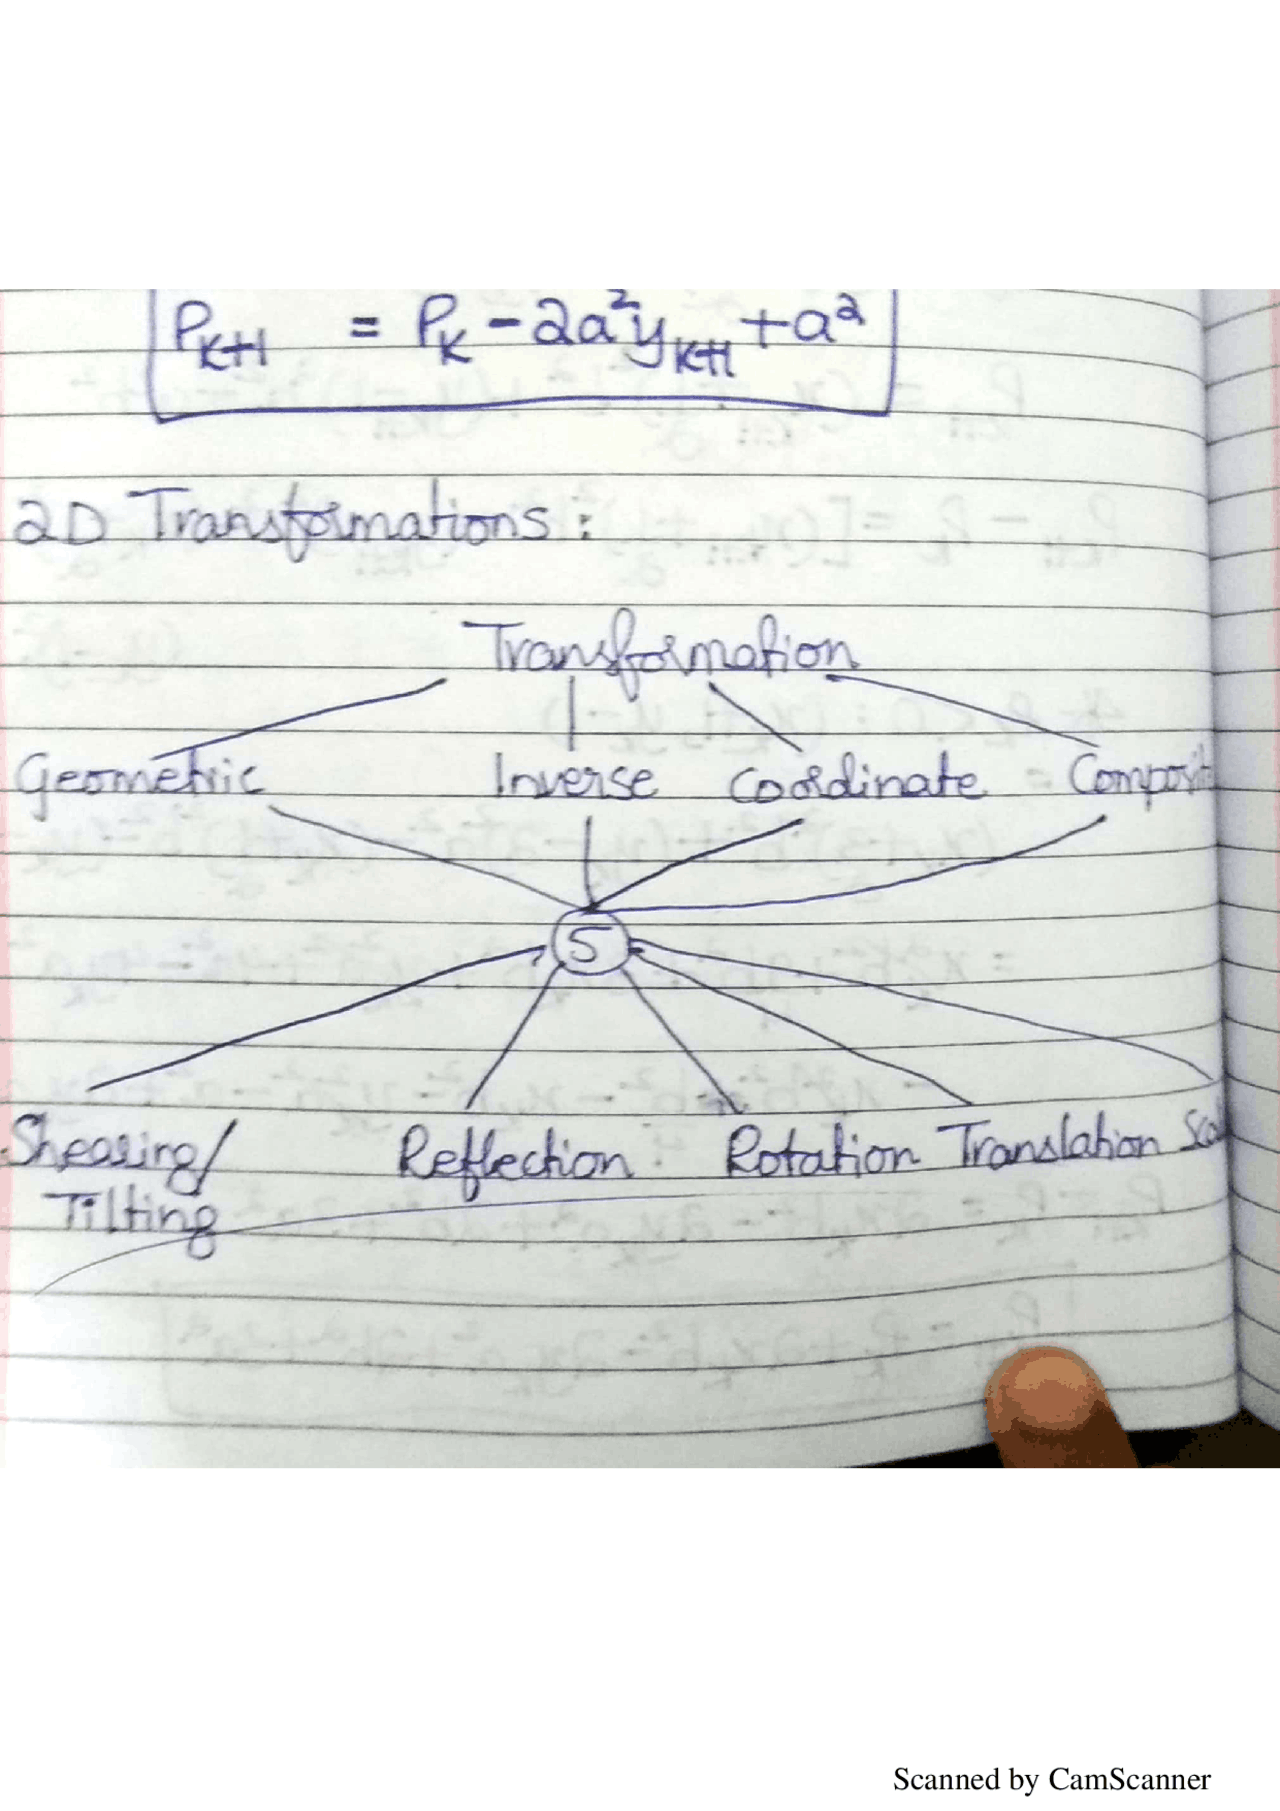 P_{k+1} = P_k - 2a²y_{k+1} + a²
2D Transformations :
Transformation
Geometric Inverse Coordinate
5
Shearing/ Reflection Rotation Translation
Tilting
Scanned by CamScanner